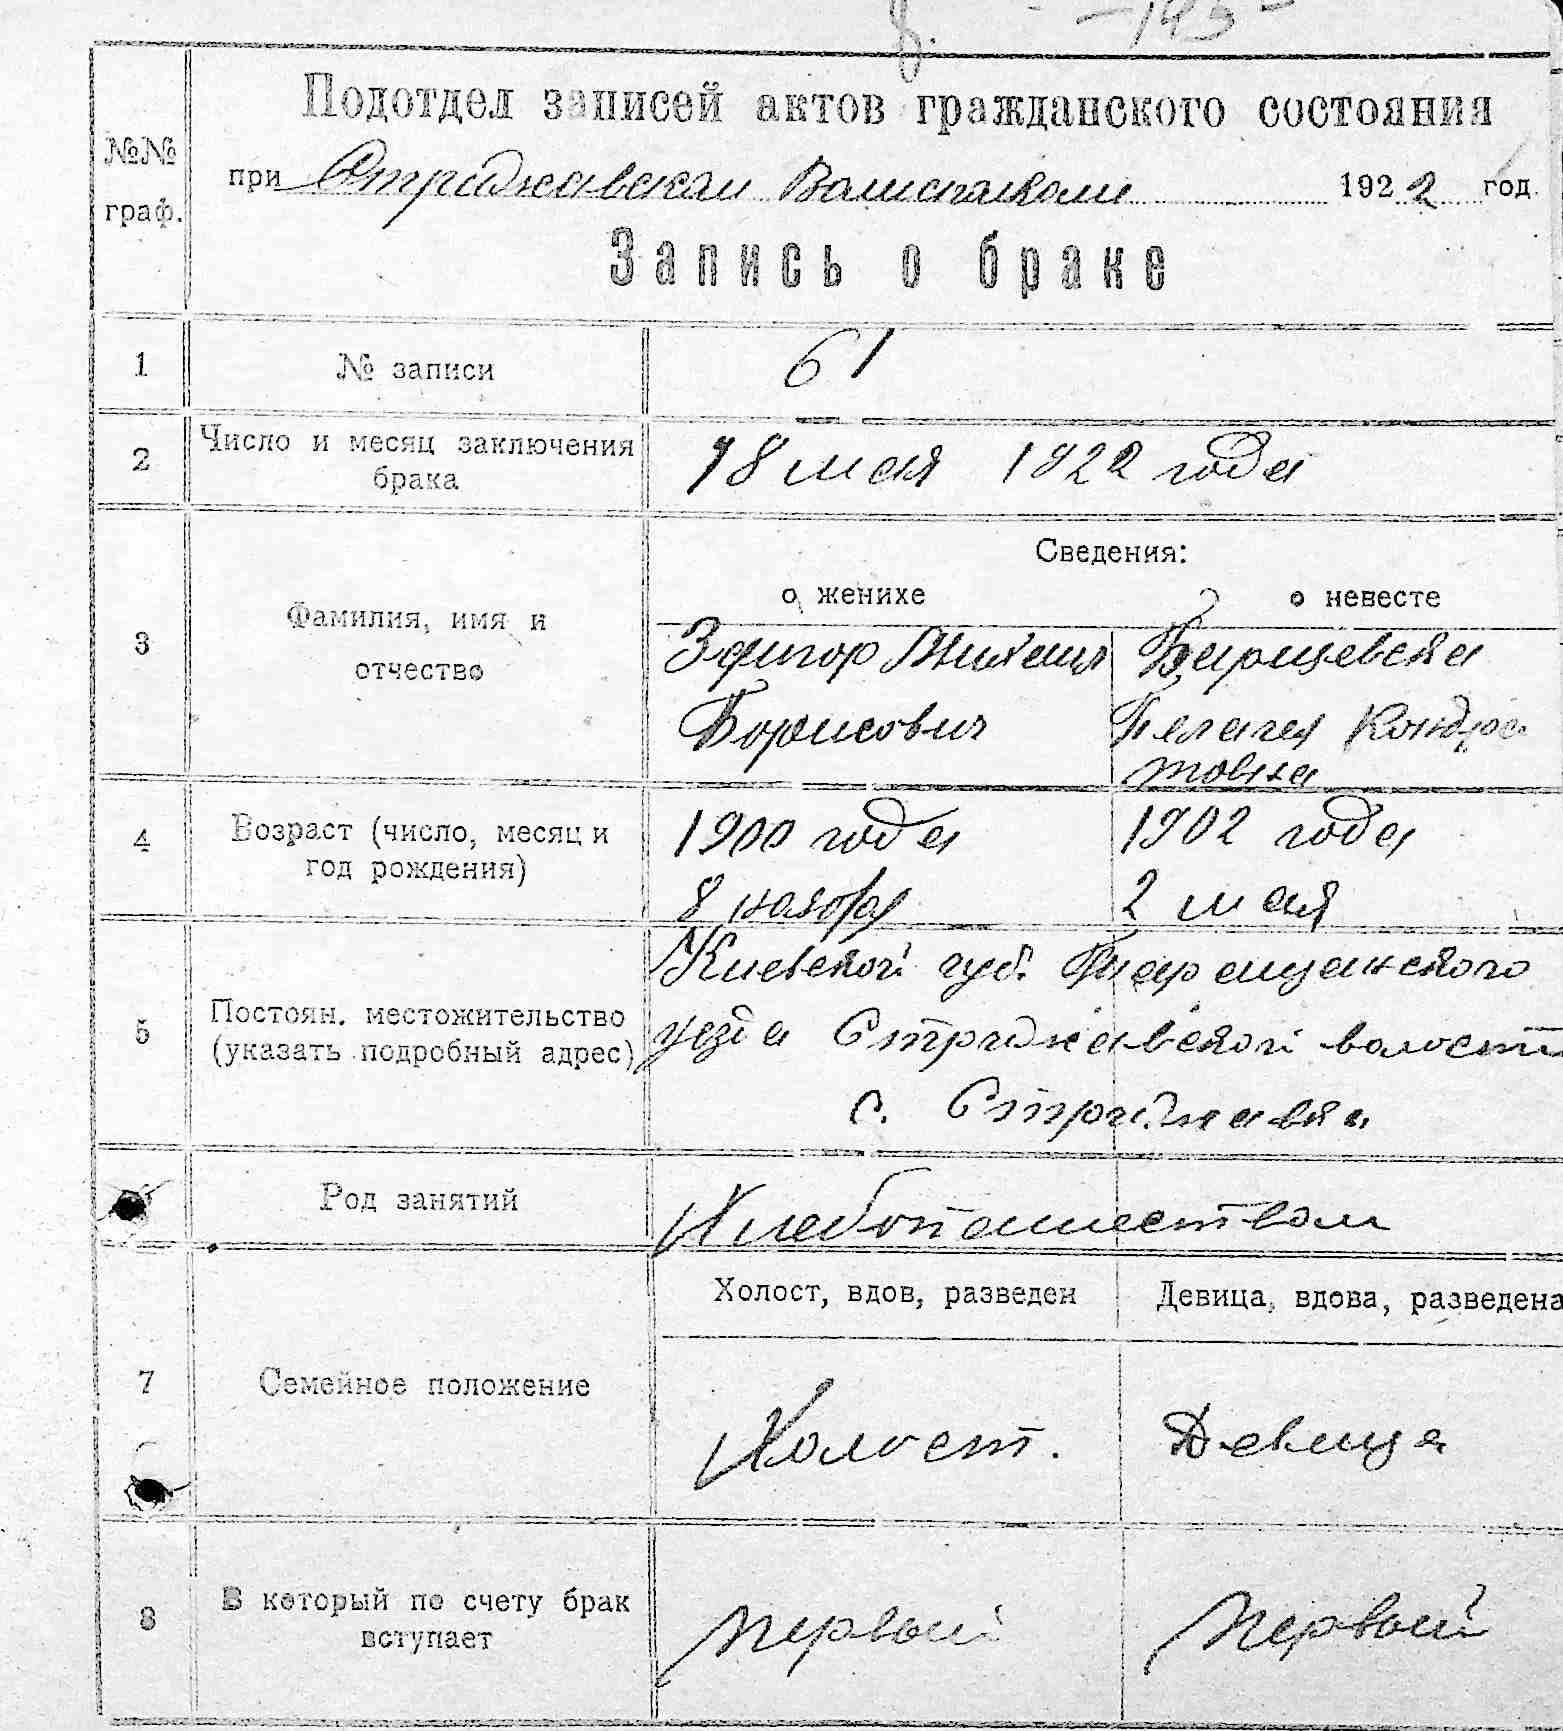 -145-
№№ граф.
Подотдел записей актов гражданского состояния
при Стрижавском Волисполкоме 1922 год.
Запись о браке
1 № записи 61
2 Число и месяц заключения
брака
18 мая 1922 года
Сведения:
о женихе о невесте
3 Фамилия, имя и
отчество
Михаил
Борисович
Барщевска
Пелагея Кондра
товна
4 Возраст (число, месяц и
год рождения)
1900 года
8 ноября
1902 года
2 мая
5 Постоян. местожительство
(указать подробный адрес)
Киевской губ. Таращанского
уезда Стрижавской волости
с. Стрижавка
Род занятий Хлебопашеством
Холост, вдов, разведен Девица, вдова, разведена
7 Семейное положение
Холост. Девица
8 В который по счету брак
вступает
первый первый